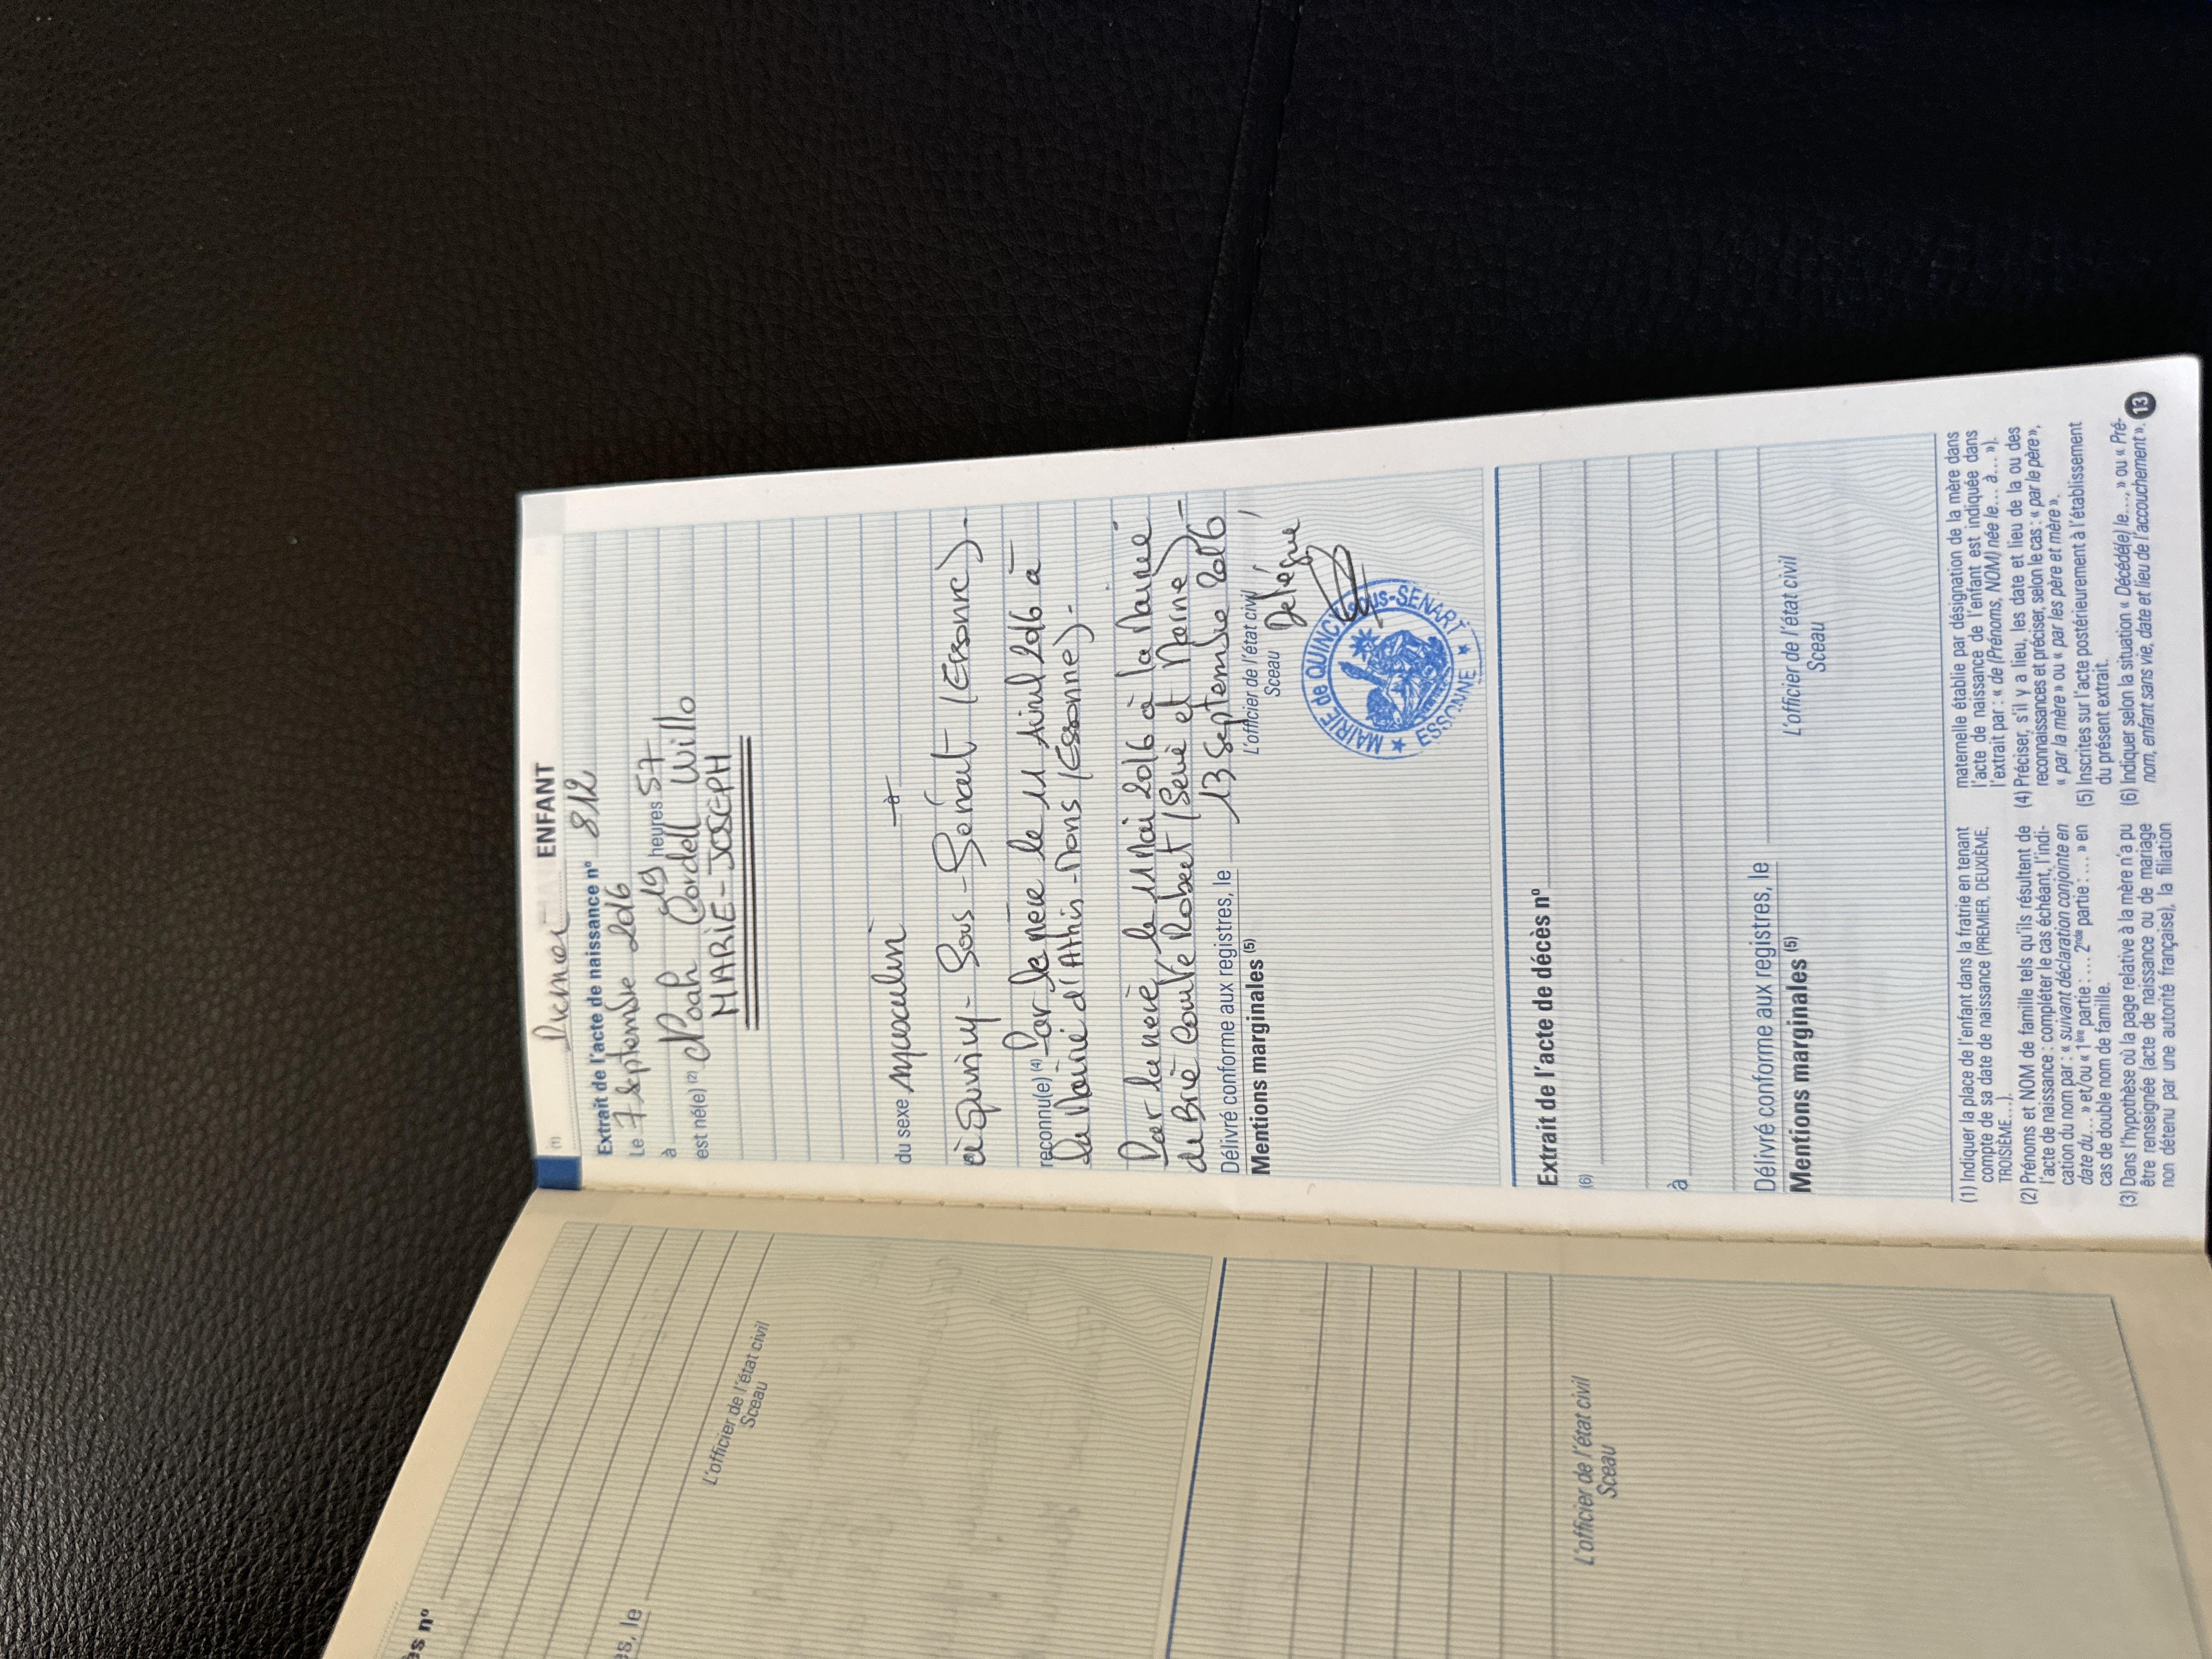 ès n°
es, le
L'officier de l'état civil
Sceau
L'officier de l'état civil
Sceau
(1) Premier ENFANT
Extrait de l'acte de naissance n° 812
Le 7 septembre 2016
à 19 heures 57
est né(e) (2) Noah Cordell Willo
MARIE-JOSEPH
du sexe masculin
à Quincy-Sous-Sénart (Essonne)-
reconnu(e) (4) Par le père le 11 Avril 2016 à
la Mairie d'Athis-Mons (Essonne)-
Par la mère, le 11 Mai 2016 à la Mairie
de Brie Comte Robert (Seine et Marne)-
Délivré conforme aux registres, le 13 Septembre 2016
Mentions marginales (5)
L'officier de l'état civil
Sceau
Délégué
MAIRIE de QUINCY sous-SENART
★ ESSONNE ★
Extrait de l'acte de décès n°
(6)
à
Délivré conforme aux registres, le
Mentions marginales (5)
L'officier de l'état civil
Sceau
(1) Indiquer la place de l'enfant dans la fratrie en tenant
compte de sa date de naissance (PREMIER, DEUXIÈME,
TROISIÈME...).
(2) Prénoms et NOM de famille tels qu'ils résultent de
l'acte de naissance : compléter le cas échéant, l'indi-
cation du nom par : « suivant déclaration conjointe en
date du... » et/ou « 1ère partie : .... 2nde partie : .... » en
cas de double nom de famille.
(3) Dans l'hypothèse où la page relative à la mère n'a pu
être renseignée (acte de naissance ou de mariage
non détenu par une autorité française), la filiation
maternelle établie par désignation de la mère dans
l'acte de naissance de l'enfant est indiquée dans
l'extrait par : « de (Prénoms, NOM) née le... à... ».
(4) Préciser, s'il y a lieu, les date et lieu de la ou des
reconnaissances et préciser, selon le cas : « par le père »,
« par la mère » ou « par les père et mère ».
(5) Inscrites sur l'acte postérieurement à l'établissement
du présent extrait.
(6) Indiquer selon la situation « Décédé(e) le..., » ou « Pré-
nom, enfant sans vie, date et lieu de l'accouchement ».
13